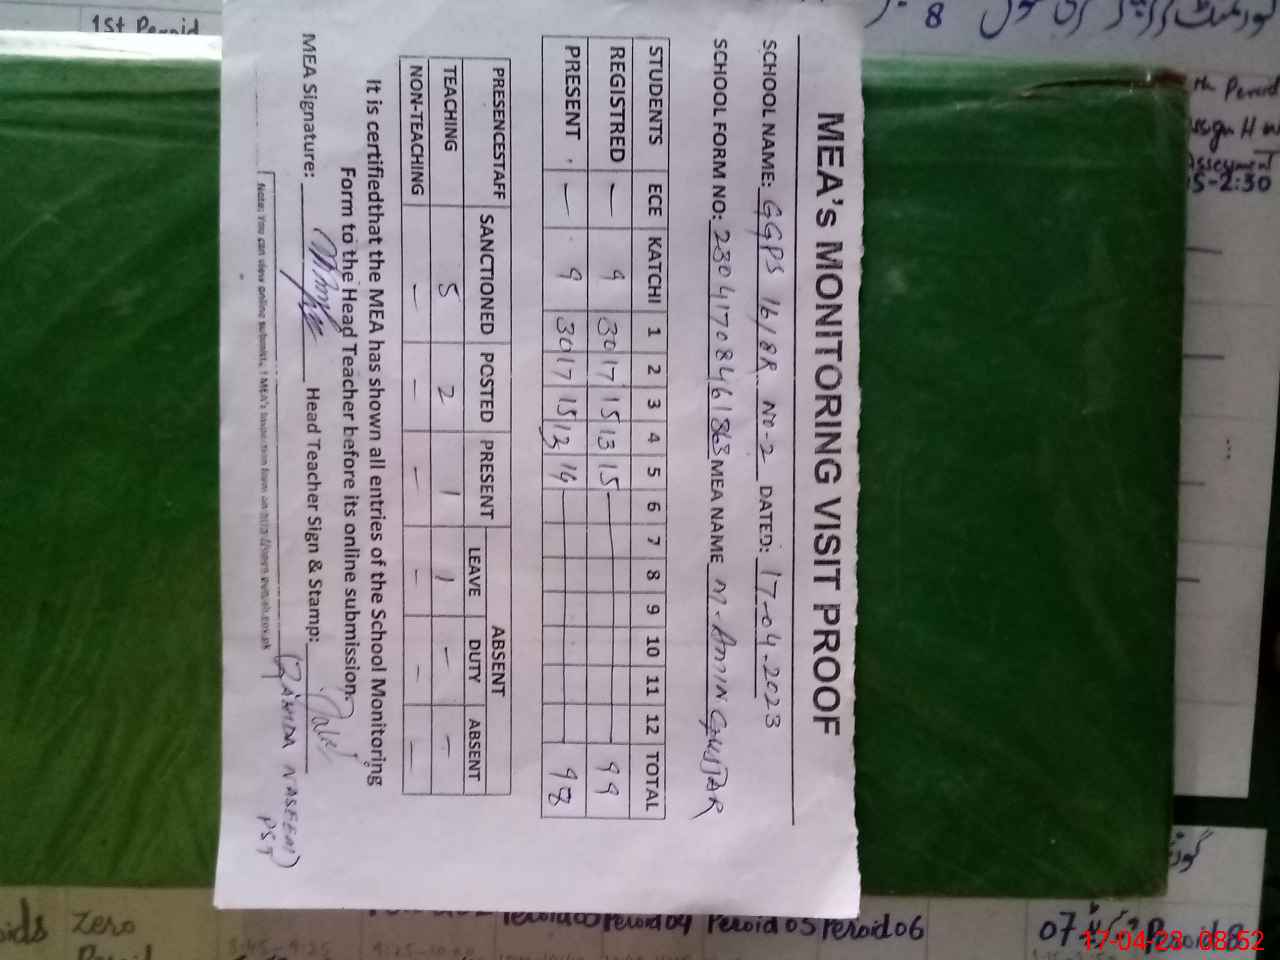 MEA's MONITORING VISIT PROOF
SCHOOL NAME: GGPS 16/8R NO-2 DATED: 17-04-2023
SCHOOL FORM NO: 23041708461863 MEA NAME M. AMIN GHUSTAR
STUDENTS ECE KATCHI 1 2 3 4 5 6 7 8 9 10 11 12 TOTAL
REGISTRED — 9 30 17 15 13 15 99
PRESENT — 9 30 17 15 12 14 98
PRESENCESTAFF SANCTIONED POSTED PRESENT ABSENT
LEAVE DUTY ABSENT
TEACHING 5 2 1 1 — —
NON-TEACHING — — — — — —
It is certifiedthat the MEA has shown all entries of the School Monitoring
Form to the Head Teacher before its online submission.
MEA Signature: Head Teacher Sign & Stamp:
(ZAHIDA NASEEM)
PST
Note: You can view online
1st Peroid
8
th Peroid
5-2:30
Zero
Peroid 04 Peroid 05 Peroid 06
07
Peroid 8
17-04-23 08:52